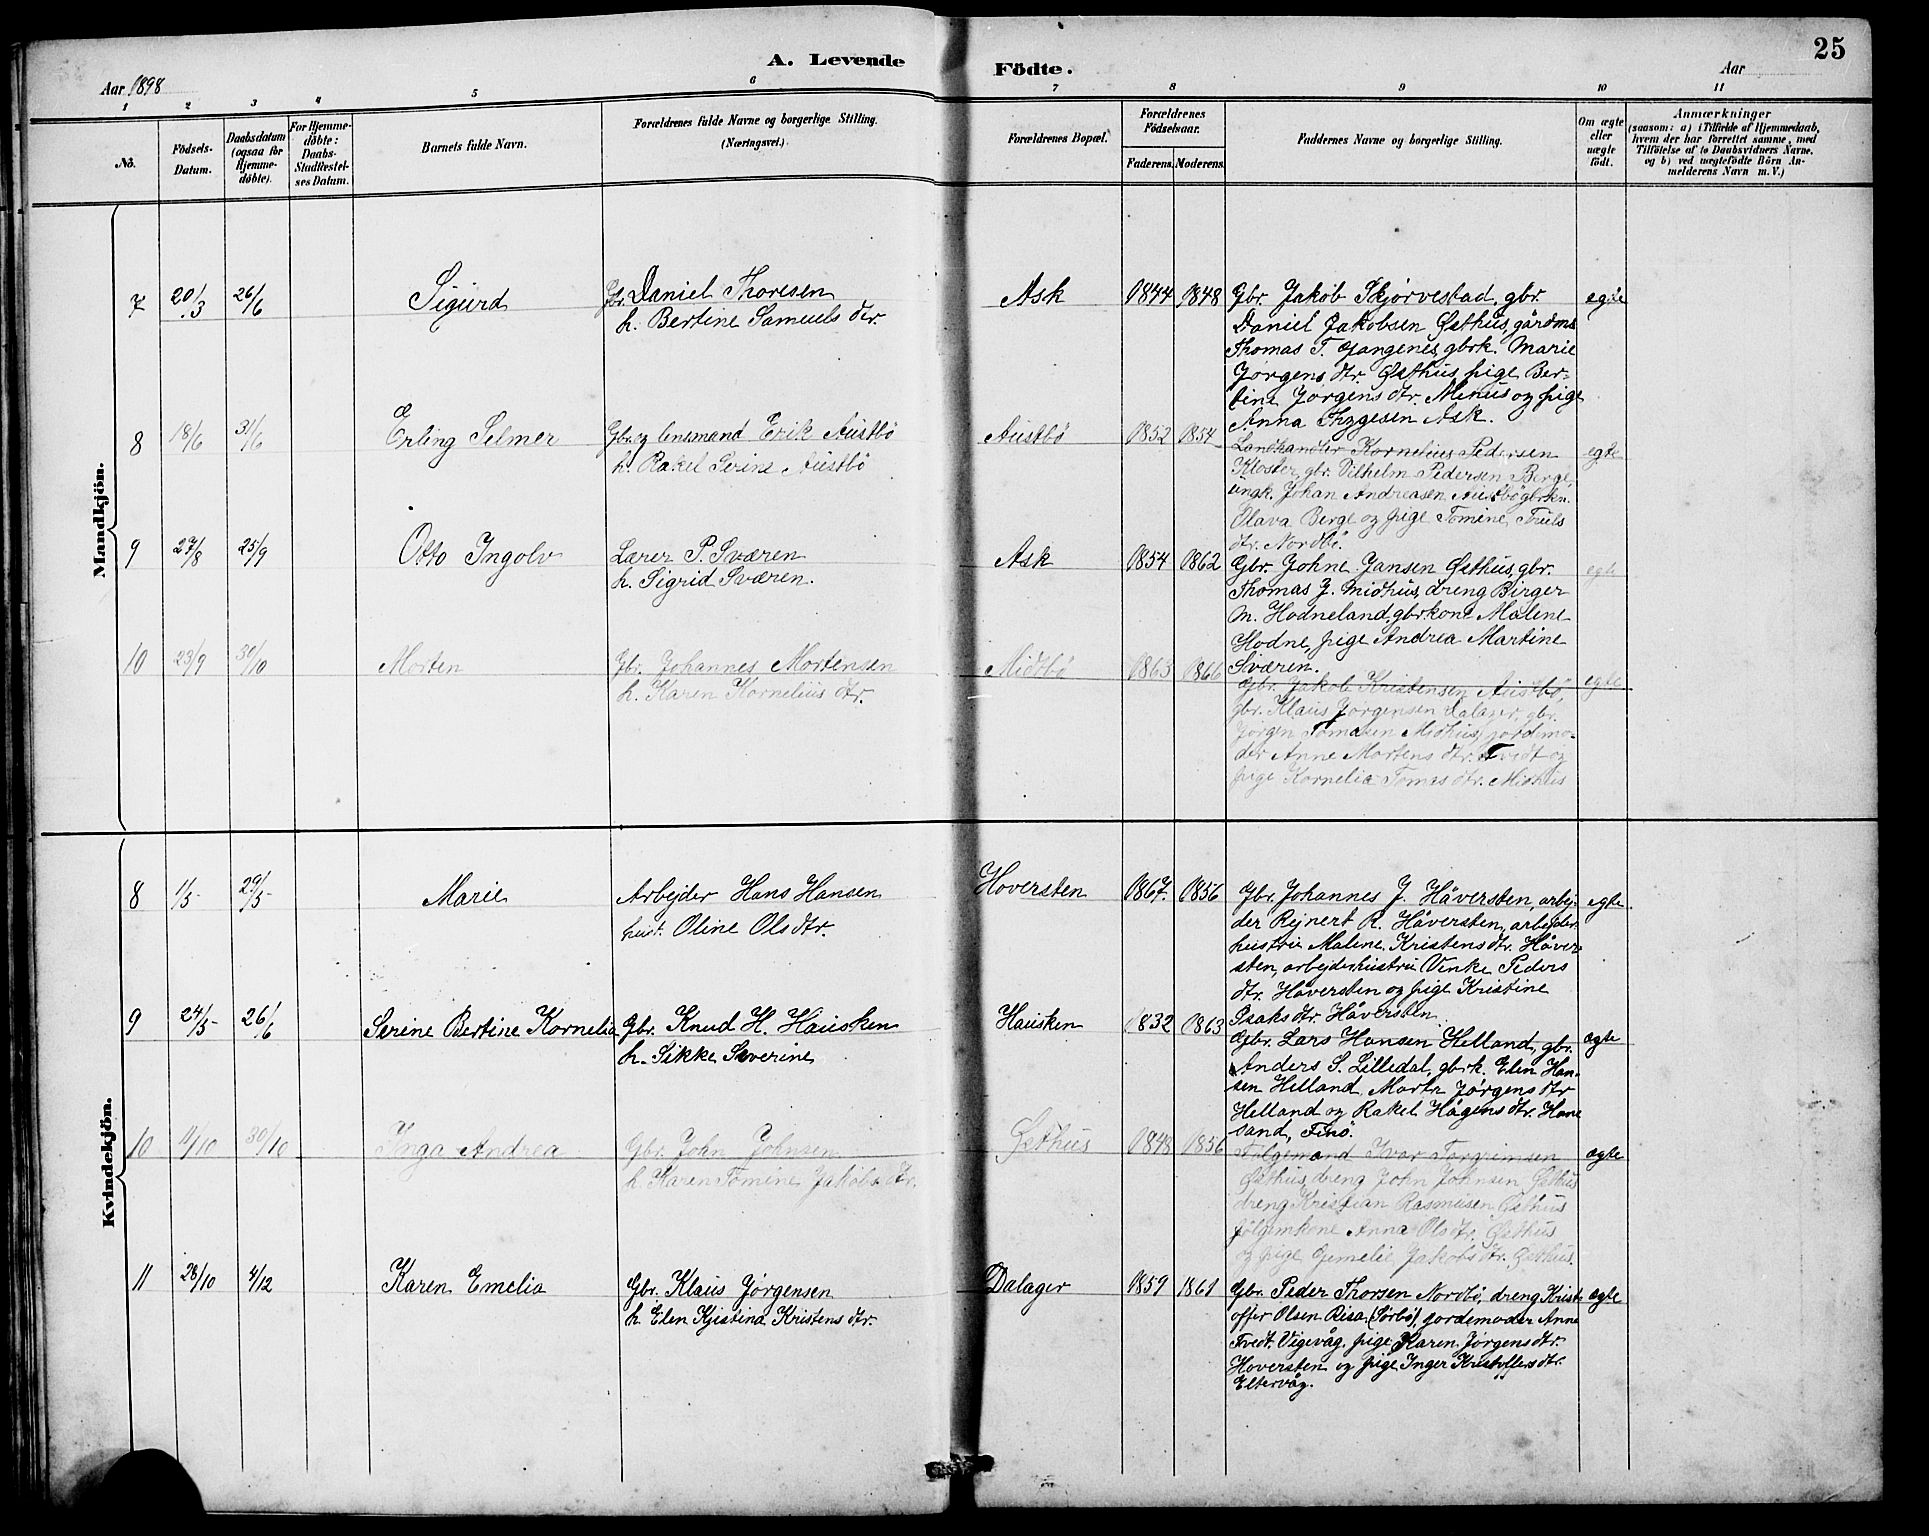 A. Levende Födte.
25
Aar 1898
Aar
1 2 3 4 5 6 7 8 9 10 11
No.
Födsels-
Datum.
Daabsdatum
(ogsaa för
Hjemme-
döbte).
For Hjemme-
döbte:
Daabs-
Stadfæstel-
ses Datum.
Barnets fulde Navn.
Forældrenes fulde Navne og borgerlige Stilling.
(Næringsvei.)
Forældrenes Bopæl.
Forældrenes
Födselsaar.
Faderens. Moderens.
Faddernes Navne og borgerlige Stilling.
Om ægte
eller
uægte
födt.
Anmærkninger
(saasom: a) i Tilfælde af Hjemmedaab,
hvem der har forrettet samme, med
Tilföielse af to Daabsvidners Navne,
og b) ved uægtefödte Börn An-
melderens Navn m. V.)
Mandkjön.
7 20/3 26/6 Sigurd
Gbr. Daniel Thoresen
h. Bertine Samuels dtr.
Ask 1844 1848
Gbr. Jakob Skjørvestad, gbr.
Daniel Jakobsen Østhus, gårdm.
Thomas T. Gangenes, gbrk. Marie
Jørgens dtr. Østhus, pige Ber-
tine Jørgens dtr. Mehus og pige
Anna Thygesen Ask.
egte
8 18/6 31/6 Erling Selmer
Gbr. og lensmand Erik Austbö
h. Rakel Serine Austbö
Austbö 1852 1854
Landhandler Kornelius Pedersen
Kloster, gbr. Vilhelm Pedersen Berge,
ungk. Johan Andreasen Austbö, gbrkn.
Olava Berge og pige Tomine Truls
dtr. Nordbö.
egte
9 27/8 25/9 Otto Ingolv
Lærer P. Sværen
h. Sigrid Sværen.
Ask 1854 1862
Gbr. Johne Jansen Østhus, gbr.
Thomas J. Midhus, dreng Birger
M. Hodneland, gbrkone Malene
Hodne, pige Andrea Martine
Sværen.
egte
10 23/9 30/10 Morten
Gbr. Johannes Mortensen
h. Karen Kornelius dtr.
Midtbö 1863 1866
Gbr. Jakob Kristensen Austbö,
gbr. Klaus Jørgensen Dalager, gbr.
Jørgen Tomasen Midhus, jordemo-
der Anne Mortens dtr. Tvedt og
pige Kornelia Tomas dtr. Midhus
egte
Kvindekjön.
8 1/5 29/5 Marie
Arbejder Hans Hansen
hust. Oline Ols dtr.
Hoversten 1867. 1856
Gbr. Johannes J. Håversten, arbej-
der Rejnert R. Håversten, arbejder
hustru Malene Kristens dtr. Håver-
sten, arbejderhustru Venke Peders
dtr. Håversten og pige Kristine
Isaks dtr. Håversten.
egte
9 24/5 26/6 Serine Bertine Kornelia
Gbr. Knud H. Hausken
h. Sikke Severine
Hausken 1832 1863
Gbr. Lars Hansen Helland, gbr.
Anders S. Lilledal, gbrk. Elen Han-
sen Helland, Marta Jørgens dtr
Helland og Rakel Hågens dtr. Hane
sand, Finö.
ægte
10 11/10 30/10 Inga Andrea
Gbr. John Johnsen
h. Karen Tomine Jakobs dtr.
Østhus 1848 1856
Følgemand Ivar Torgrimsen
Østhus, dreng John Johnsen Østhus
dreng Kristian Rasmusen Østhus
følgemkone Anna Ols dtr. Østhus
og pige Gemelie Jakobs dtr. Østhus.
ægte
11 28/10 4/12 Karen Emelia
Gbr. Klaus Jørgensen
h. Elen Kjistina Kristens dtr.
Dalager 1859 1861
Gbr. Peder Thorsen Nordbö, dreng Krist-
offer Olsen Risa (Sørbö), jordemoder Anne
Tvedt Vigevåg, pige Karen Jørgens dtr.
Hoversten og pige Inger Kristoffers dtr.
Eltervåg.
ægte